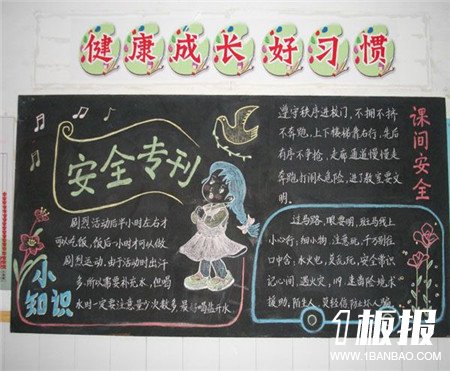 健康成长好习惯
安全专刊
剧烈活动后半小时左右才
可以吃饭,饭后一小时才可以做
剧烈运动,由于活动时出汗
多,所以需要补充水,但喝
水时一定要注意量少次数多,最好喝盐开水
小知识
遵守秩序进校门,不拥不挤
不奔跑,上下楼梯靠右行,先后
有序不争抢,走廊通道慢慢走
奔跑打闹太危险,进了教室要文
明。
课间安全
过马路,眼要明,斑马线上
小心行,细小物,注意玩,千万别往
口中含,水火电,莫乱玩,安全常识
记心间,遇火灾,119,走出险境求
援助,陌生人,莫轻信防止坏人骗
1板报
WWW.1BANBAO.COM